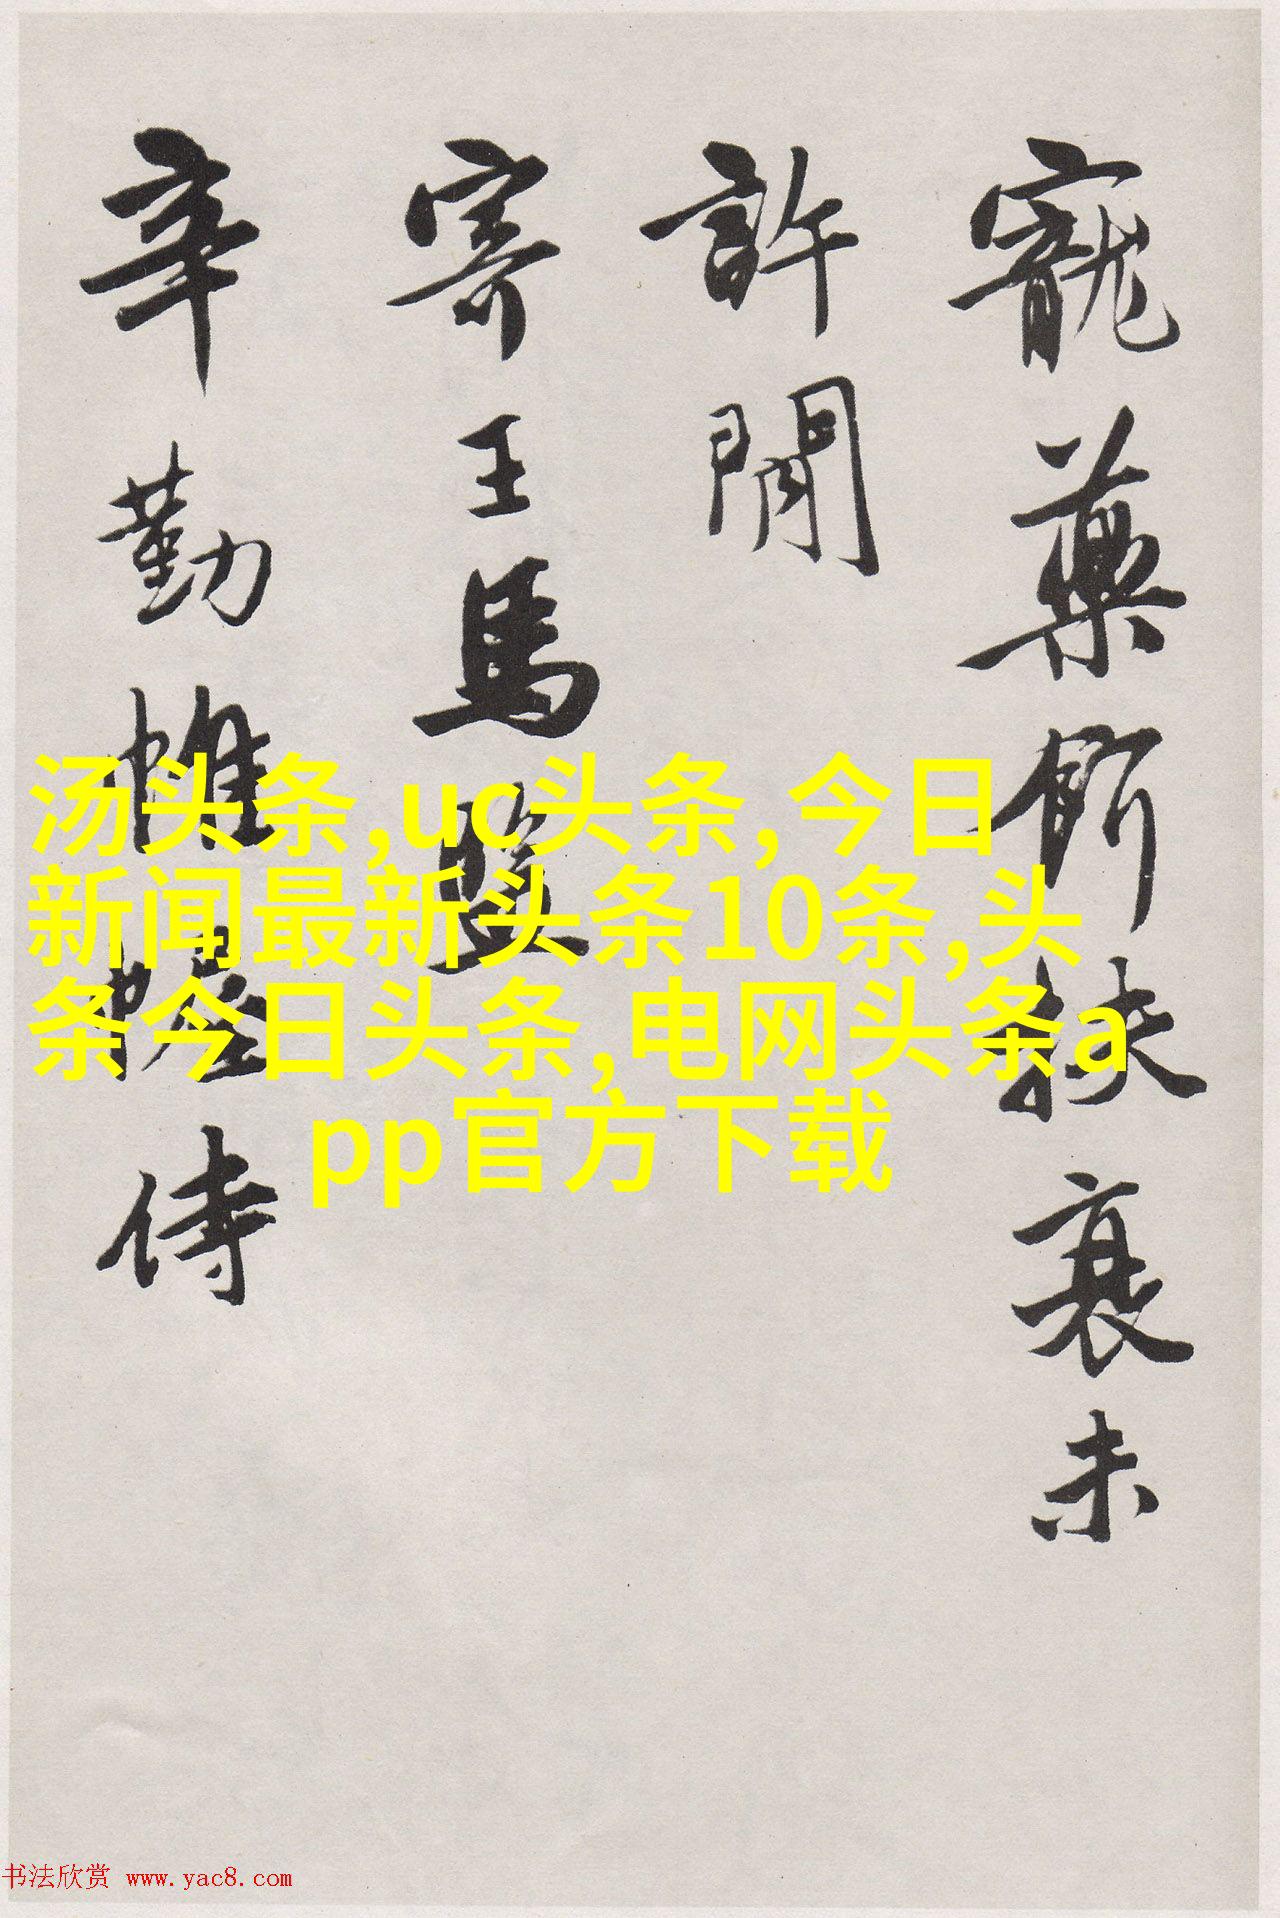 寵藥餌扶衰未
許閒
寄王馬監
辛勤帷幄侍
汤头条,uc头条,今日
新闻最新头条10条,头
条今日头条,电网头条a
pp官方下载
书法欣赏 www.yac8.com